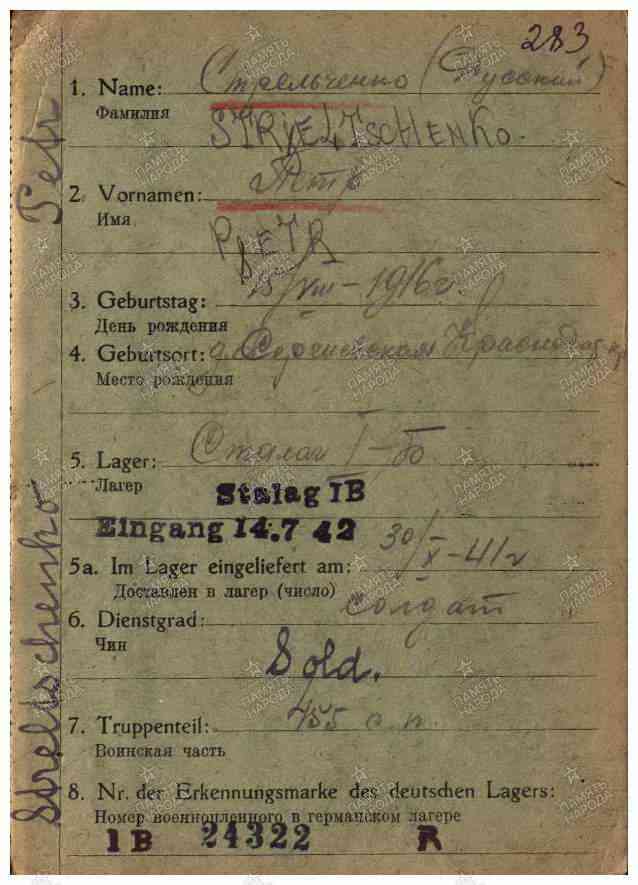 283
1. Name: Стрельченко (Русский)
Фамилия
STRJELTSCHENKO.
2. Vornamen: Петр
Имя
PJETR
3. Geburtstag: 15/VIII – 1916г.
День рождения
4. Geburtsort: Сергиевская
Место рождения
5. Lager: Сталаг I–Б
Лагер
Stalag IB
Eingang 14.7 42
5a. Im Lager eingeliefert am: 30/X–41г
Доставлен в лагер (число)
6. Dienstgrad: солдат
Чин
Sold.
7. Truppenteil: 455 с. п.
Воинская часть
8. Nr. der Erkennungsmarke des deutschen Lagers:
Номер военнопленного в германском лагере
IB 24322 R
Streltschenko Petr
ПАМЯТЬ НАРОДА